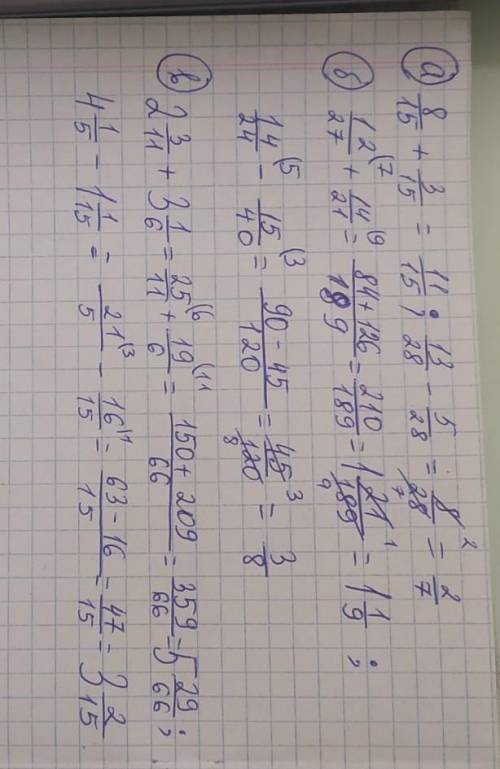 а) 8/15 + 3/15 = 11/15; 13/28 - 5/28 = 8/28 = 2/7
б) 12/27 (7 + 14/21 (9 = 84+126/189 = 210/189 = 1 21/189 = 1 1/9;
14/24 (5 - 15/40 (3 = 90-45/120 = 45/120 = 3/8
в) 2 3/11 + 3 1/6 = 25/11 (6 + 19/6 (11 = 150+209/66 = 359/66 = 5 29/66;
4 1/5 - 1 1/15 = 21/5 (3 - 16/15 (1 = 63-16/15 = 47/15 = 3 2/15.